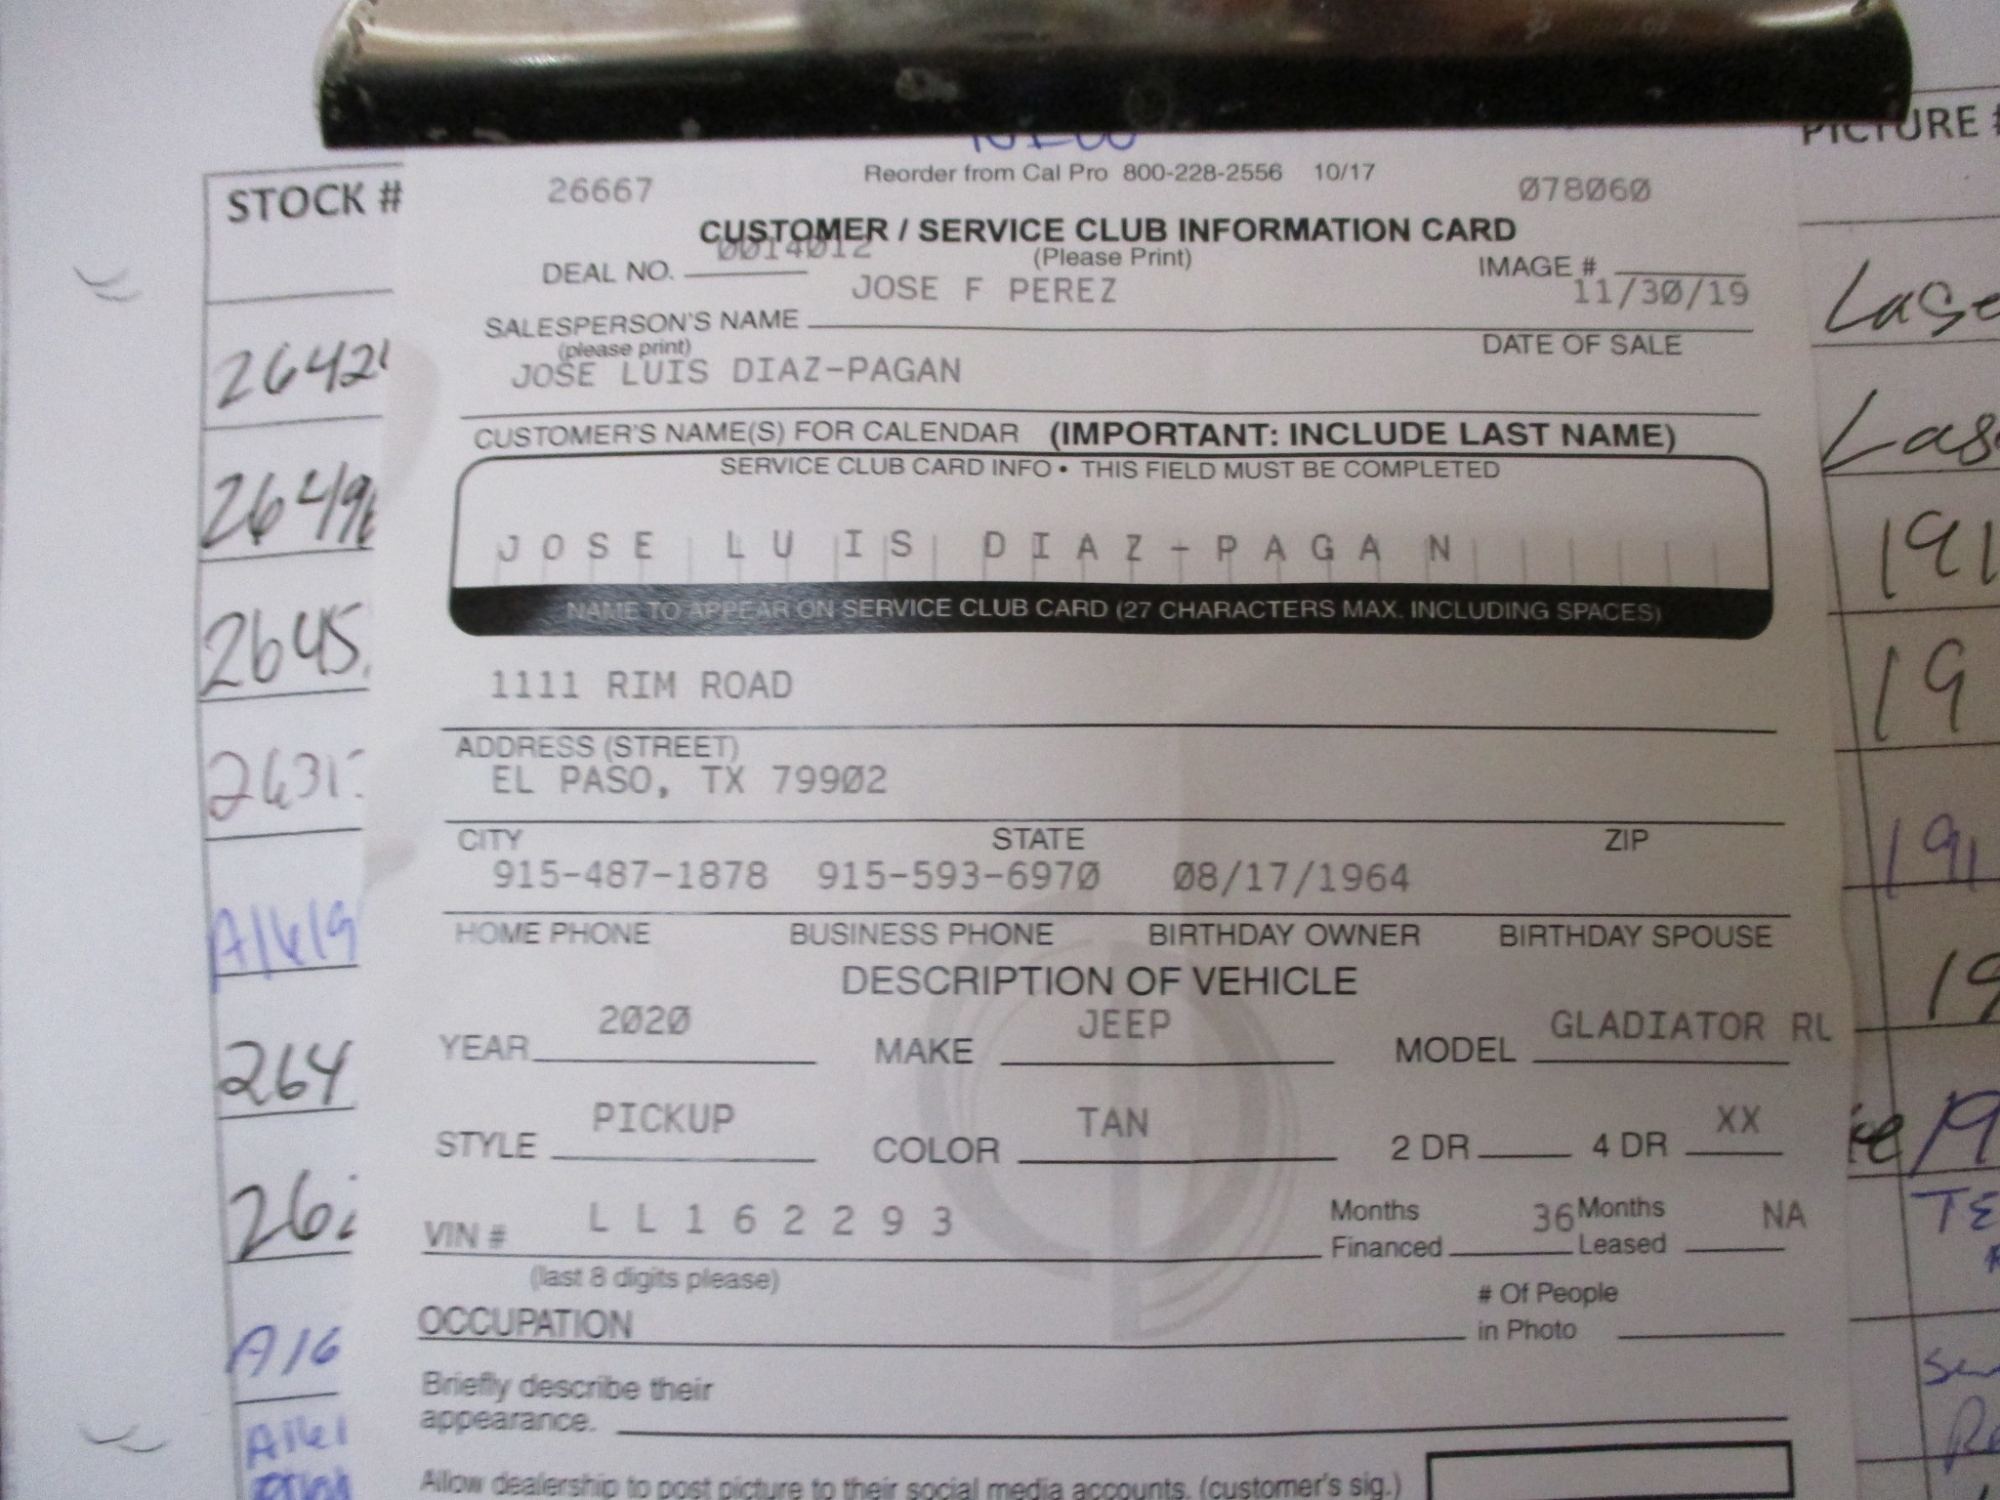 PICTURE #
STOCK #
26667 Reorder from Cal Pro 800-228-2556 10/17 078060
CUSTOMER / SERVICE CLUB INFORMATION CARD
0014012
DEAL NO. (Please Print) IMAGE #
JOSE F PEREZ 11/30/19
SALESPERSON'S NAME
(please print) DATE OF SALE
JOSE LUIS DIAZ-PAGAN
CUSTOMER'S NAME(S) FOR CALENDAR (IMPORTANT: INCLUDE LAST NAME)
SERVICE CLUB CARD INFO • THIS FIELD MUST BE COMPLETED
JOSE LUIS DIAZ-PAGAN
NAME TO APPEAR ON SERVICE CLUB CARD (27 CHARACTERS MAX. INCLUDING SPACES)
1111 RIM ROAD
ADDRESS (STREET)
EL PASO, TX 79902
CITY STATE ZIP
915-487-1878 915-593-6970 08/17/1964
HOME PHONE BUSINESS PHONE BIRTHDAY OWNER BIRTHDAY SPOUSE
DESCRIPTION OF VEHICLE
YEAR 2020 MAKE JEEP MODEL GLADIATOR RL
STYLE PICKUP COLOR TAN 2 DR 4 DR XX
VIN # L L 1 6 2 2 9 3 Months Financed 36 Months Leased NA
(last 8 digits please)
OCCUPATION # Of People in Photo
Briefly describe their
appearance.
Allow dealership to post picture to their social media accounts. (customer's sig.)